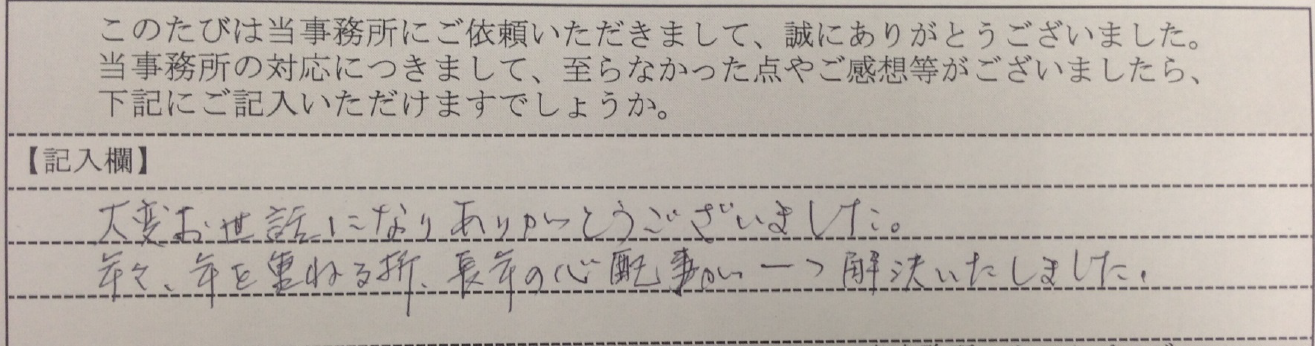 このたびは当事務所にご依頼いただきまして、誠にありがとうございました。
当事務所の対応につきまして、至らなかった点やご感想等がございましたら、
下記にご記入いただけますでしょうか。
【記入欄】
大変お世話になりありがとうございました。
年々、年を重ねる折、長年の心配事が一つ解決いたしました。